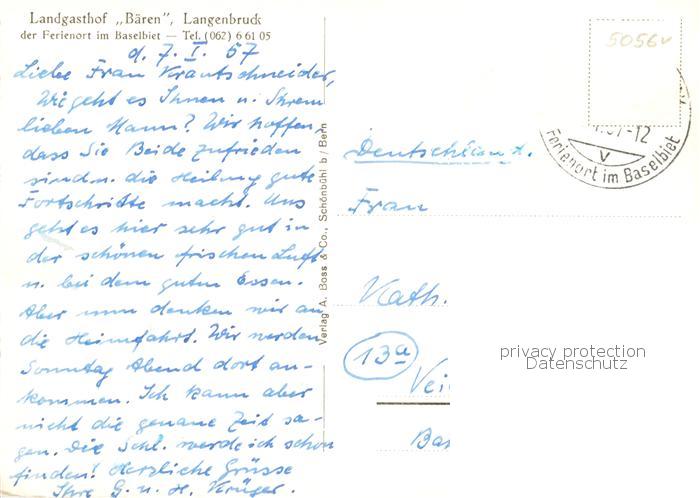 Landgasthof „Bären", Langenbruck
der Ferienort im Baselbiet — Tel. (062) 6 61 05
d. 7. I. 57
Liebe Frau Krautschneider,
Wie geht es Ihnen u. Ihrem
lieben Mann? Wir hoffen,
dass Sie Beide zufrieden
sind u. die Heilung gute
Fortschritte macht. Uns
geht es hier sehr gut in
der schönen frischen Luft
u. bei dem guten Essen.
Aber nun denken wir an
die Heimfahrt. Wir werden
Sonntag Abend dort an-
kommen. Ich kann aber
nicht die genaue Zeit sa-
gen. Die Schl. werde ich schon
finden! Herzliche Grüsse
Ihre G. u. H. Krüger.
Verlag A. Boss & Co., Schönbühl b / Bern
5056v
57-12
V
Ferienort im Baselbiet
Deutschland.
Frau
Kath.
13a
Vei
Bas
privacy protection
Datenschutz